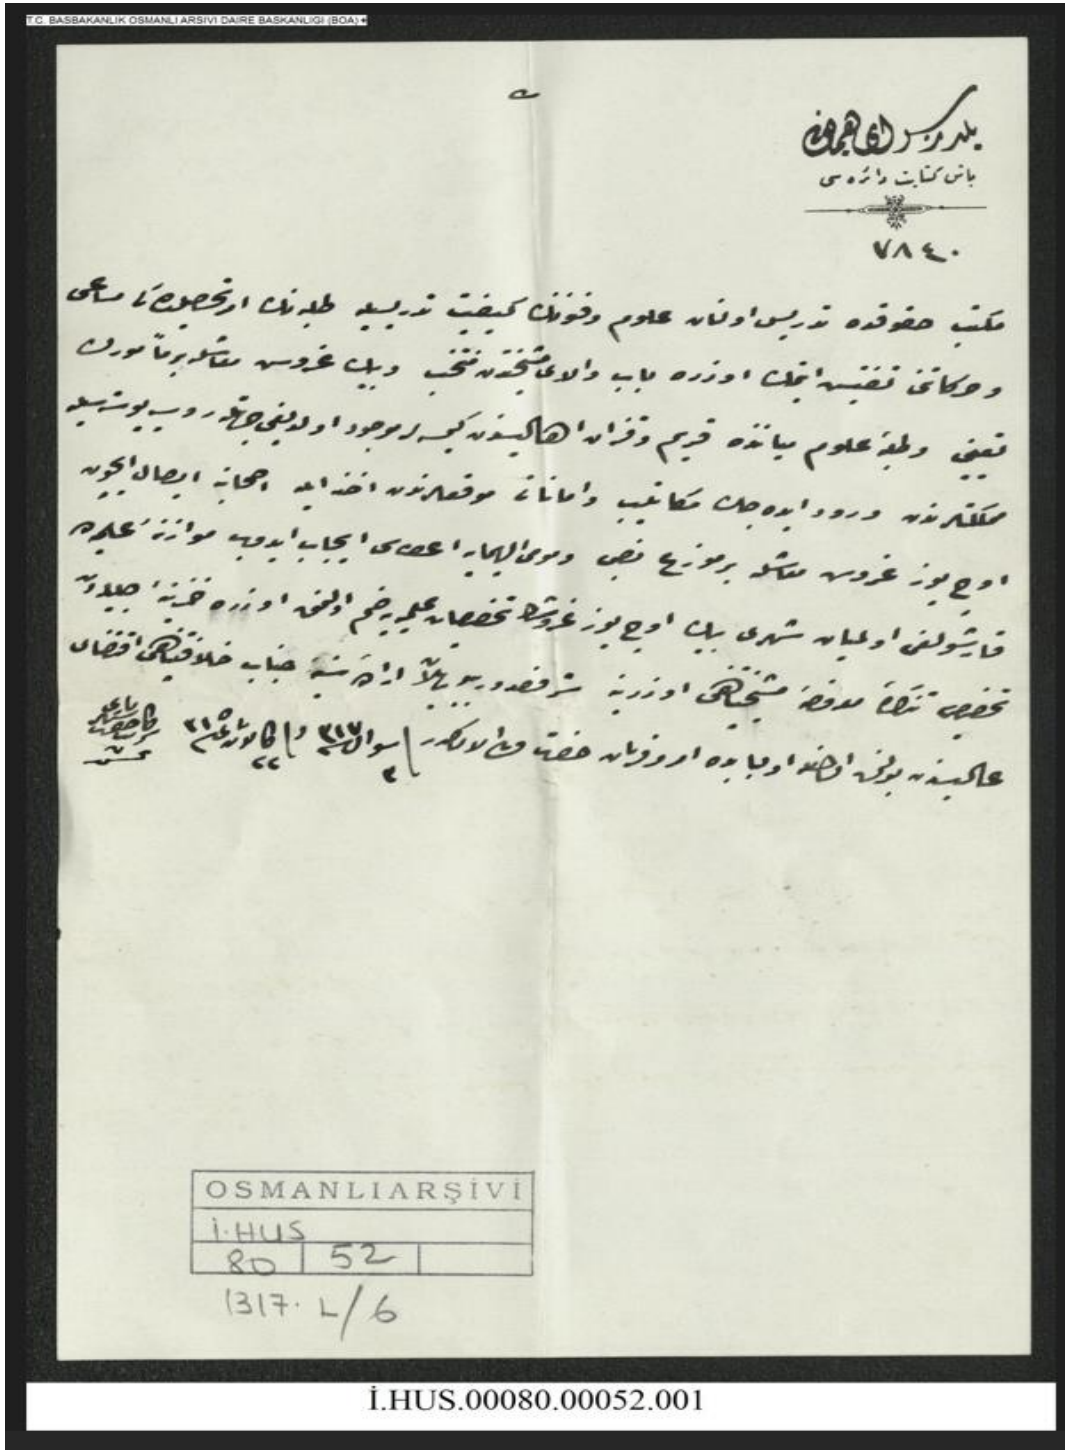 T.C. BASBAKANLIK OSMANLI ARSIVI DAIRE BASKANLIGI (BOA)
یلدز سرای همایونی
باش كتابت دائره سی
٧٨٤٠
مكتب حقوقده تدریس اولنان علوم وفنونك كیفیت تدریسیله طلبه نك مساعی
وحركاتنی تفتیش ایتمك اوزره باب والای مشیختدن منتخب وبیك غروش معاشله بر مأمورك
تعیینی وطلبهٔ علوم میاننده قریم وقزان اهالیسندن كیمسه لر موجود اولدیغی جهتله روسیه پوسته سیله
مملكتلرندن ورود ایده جك مكاتیب وامانات موقعلرندن اخذ ایله اصحابنه ایصال ایچون
اوچ یوز غروش معاشله بر موزع نصبی ومومی الیهمایه اعطاسی ایجاب ایدوب موازنهٔ علمیه ده
قارشولغی اولمیان شهری بیك اوچ یوز غروشك تخصیصات علمیه یه ضم اولنمق اوزره خزینهٔ جلیله دن
تخصیصی تذكرهٔ معروضهٔ مشیختپناهی اوزرینه شرفصدور بیوریلان ارادهٔ سنیهٔ جناب خلافتپناهی اقتضای
عالیسندن بولنمش اولمغله اولبابده امر وفرمان حضرت ولی الامركدر
شوال ٣١٧
٢٢ كانون ٣١٥
OSMANLI ARŞİVİ
İ.HUS
80 52
1317. L/6
İ.HUS.00080.00052.001